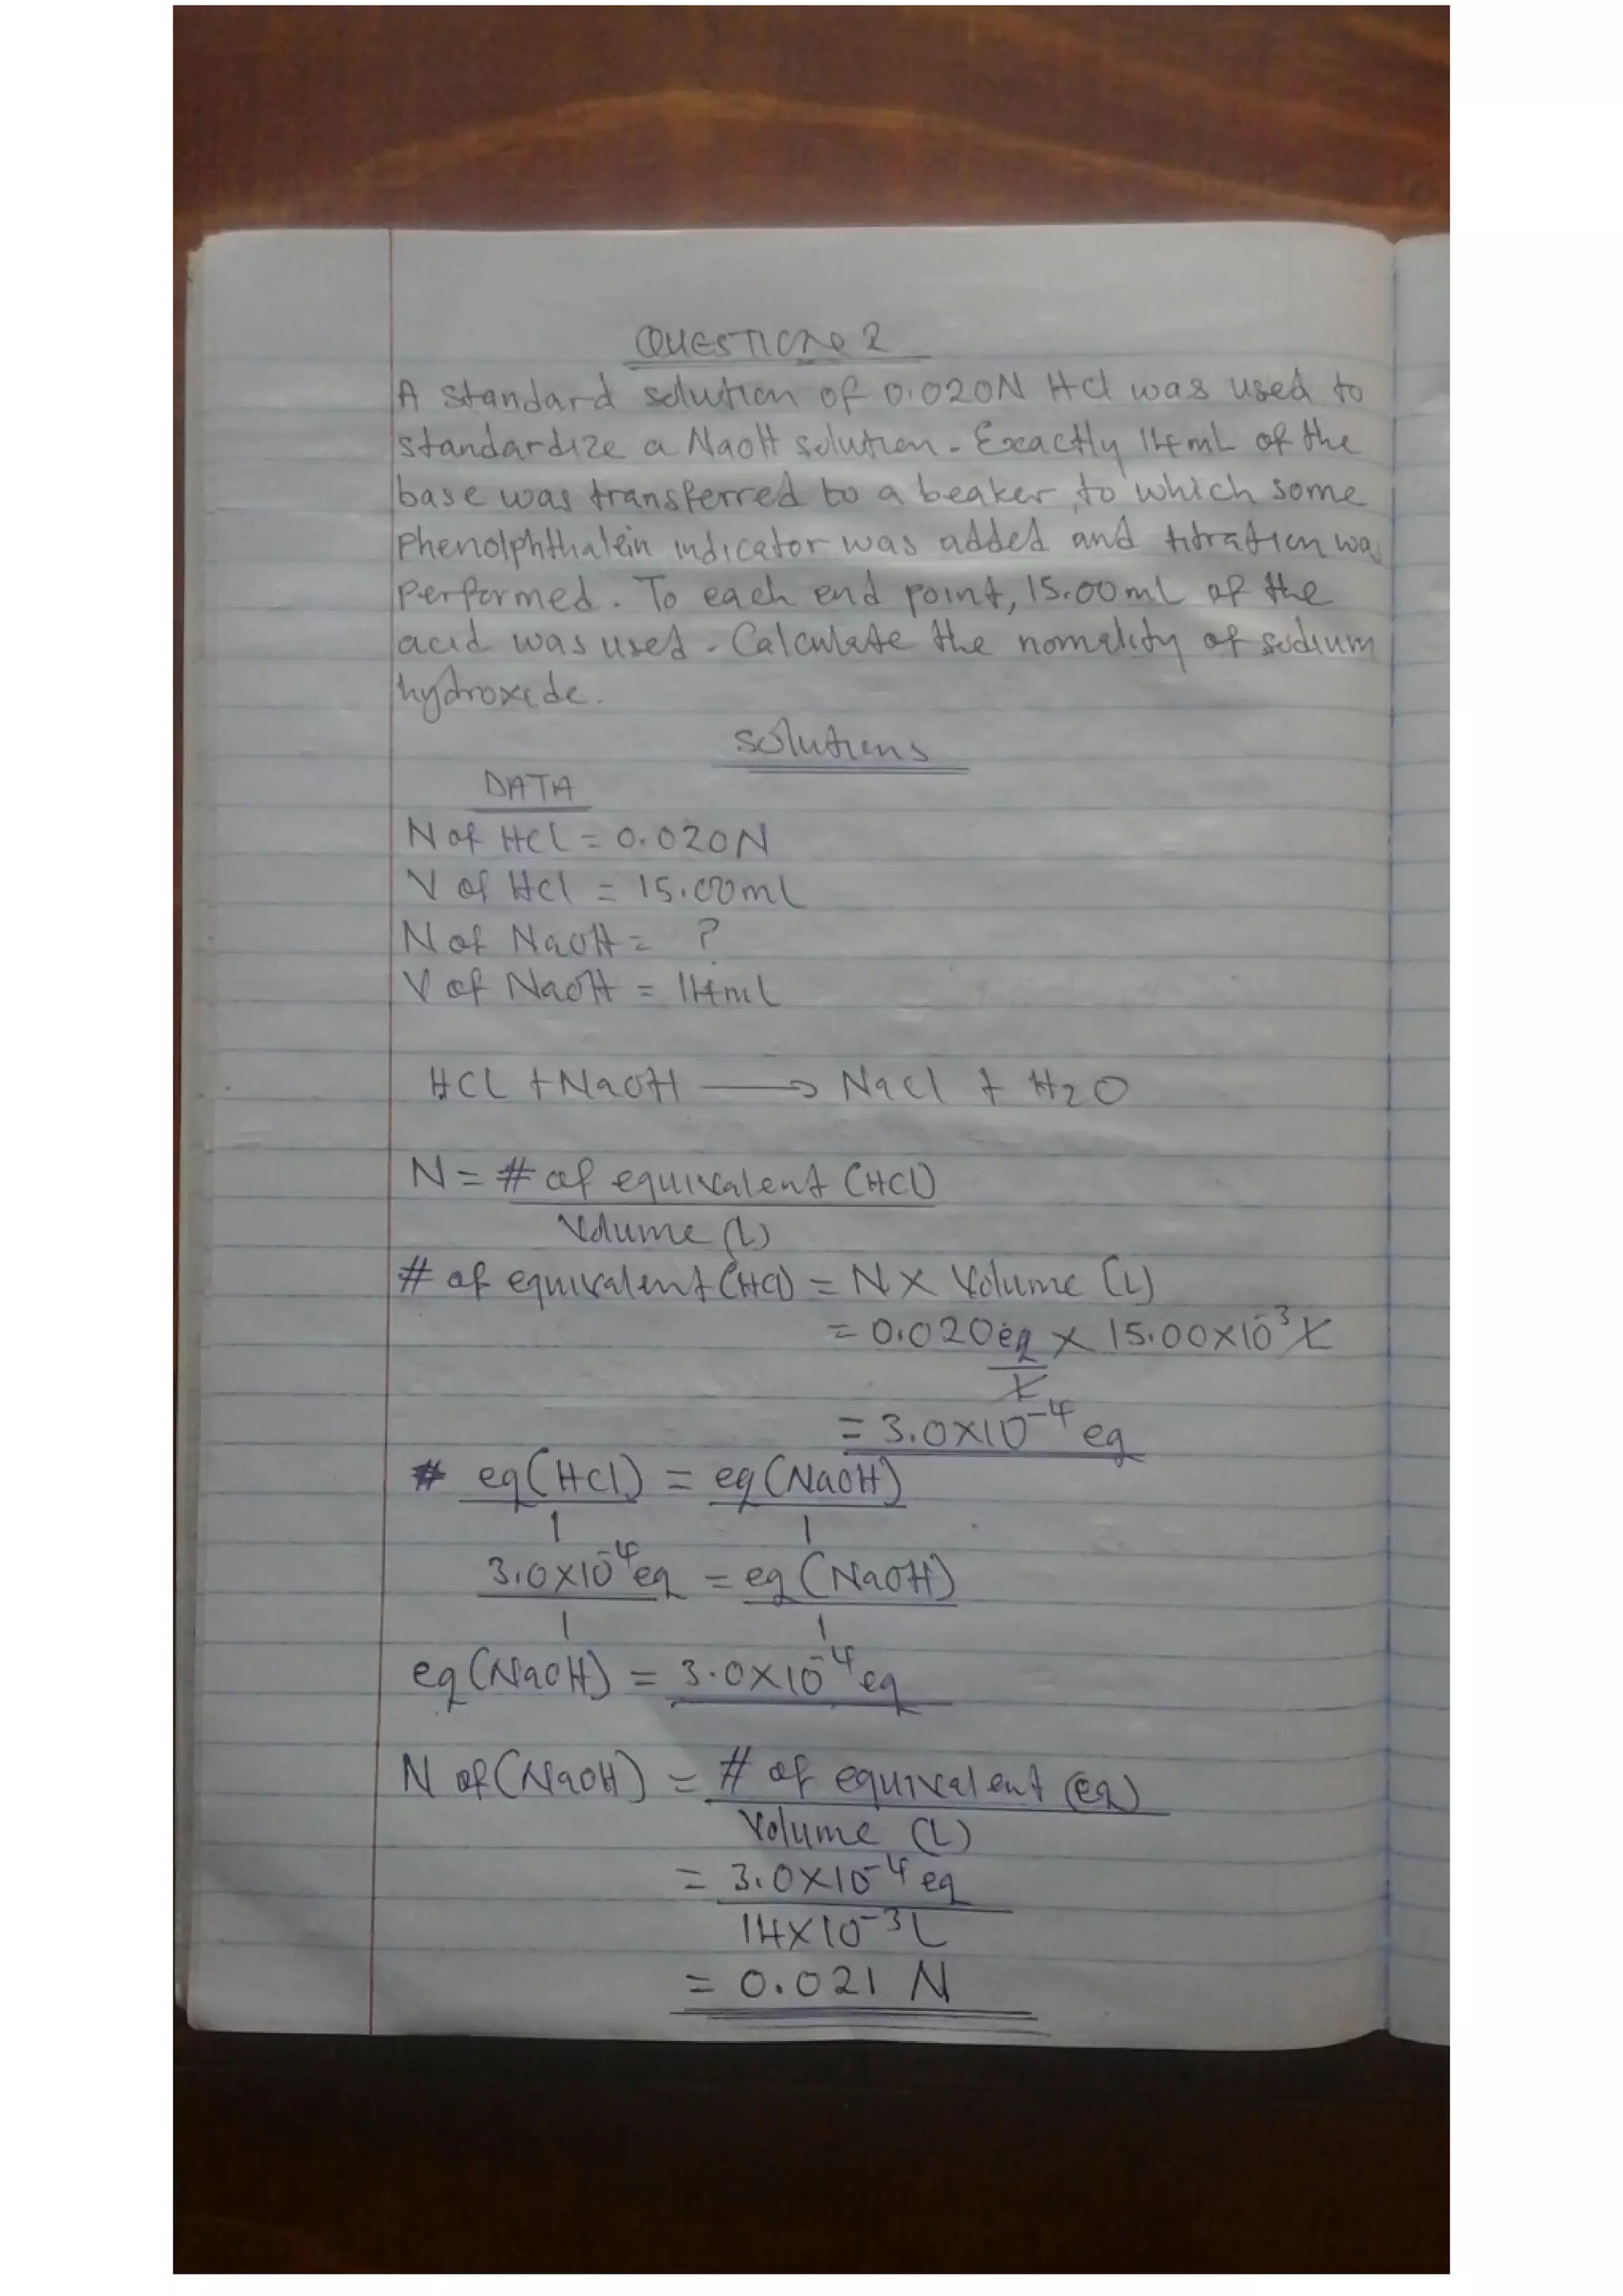 QUESTION 2
A standard solution of 0.020N HCl was used to
standardize a NaOH solution. Exactly 14mL of the
base was transferred to a beaker, to which some
Phenolphthalein indicator was added and titration was
Performed. To each end point, 15.00mL of the
acid was used. Calculate the normality of sodium
hydroxide.
Solutions
DATA
N of HCl = 0.020N
V of HCl = 15.00mL
N of NaOH = ?
V of NaOH = 14mL
HCl + NaOH → NaCl + H2O
N = # of equivalent (HCl)
Volume (L)
# of equivalent (HCl) = N × Volume (L)
= 0.020eq × 15.00×10⁻³L
L
= 3.0×10⁻⁴ eq
# eq(HCl) = eq(NaOH)
1 1
3.0×10⁻⁴eq = eq(NaOH)
1 1
eq(NaOH) = 3.0×10⁻⁴eq
N of(NaOH) = # of equivalent (eq)
Volume (L)
= 3.0×10⁻⁴eq
14×10⁻³L
= 0.021 N